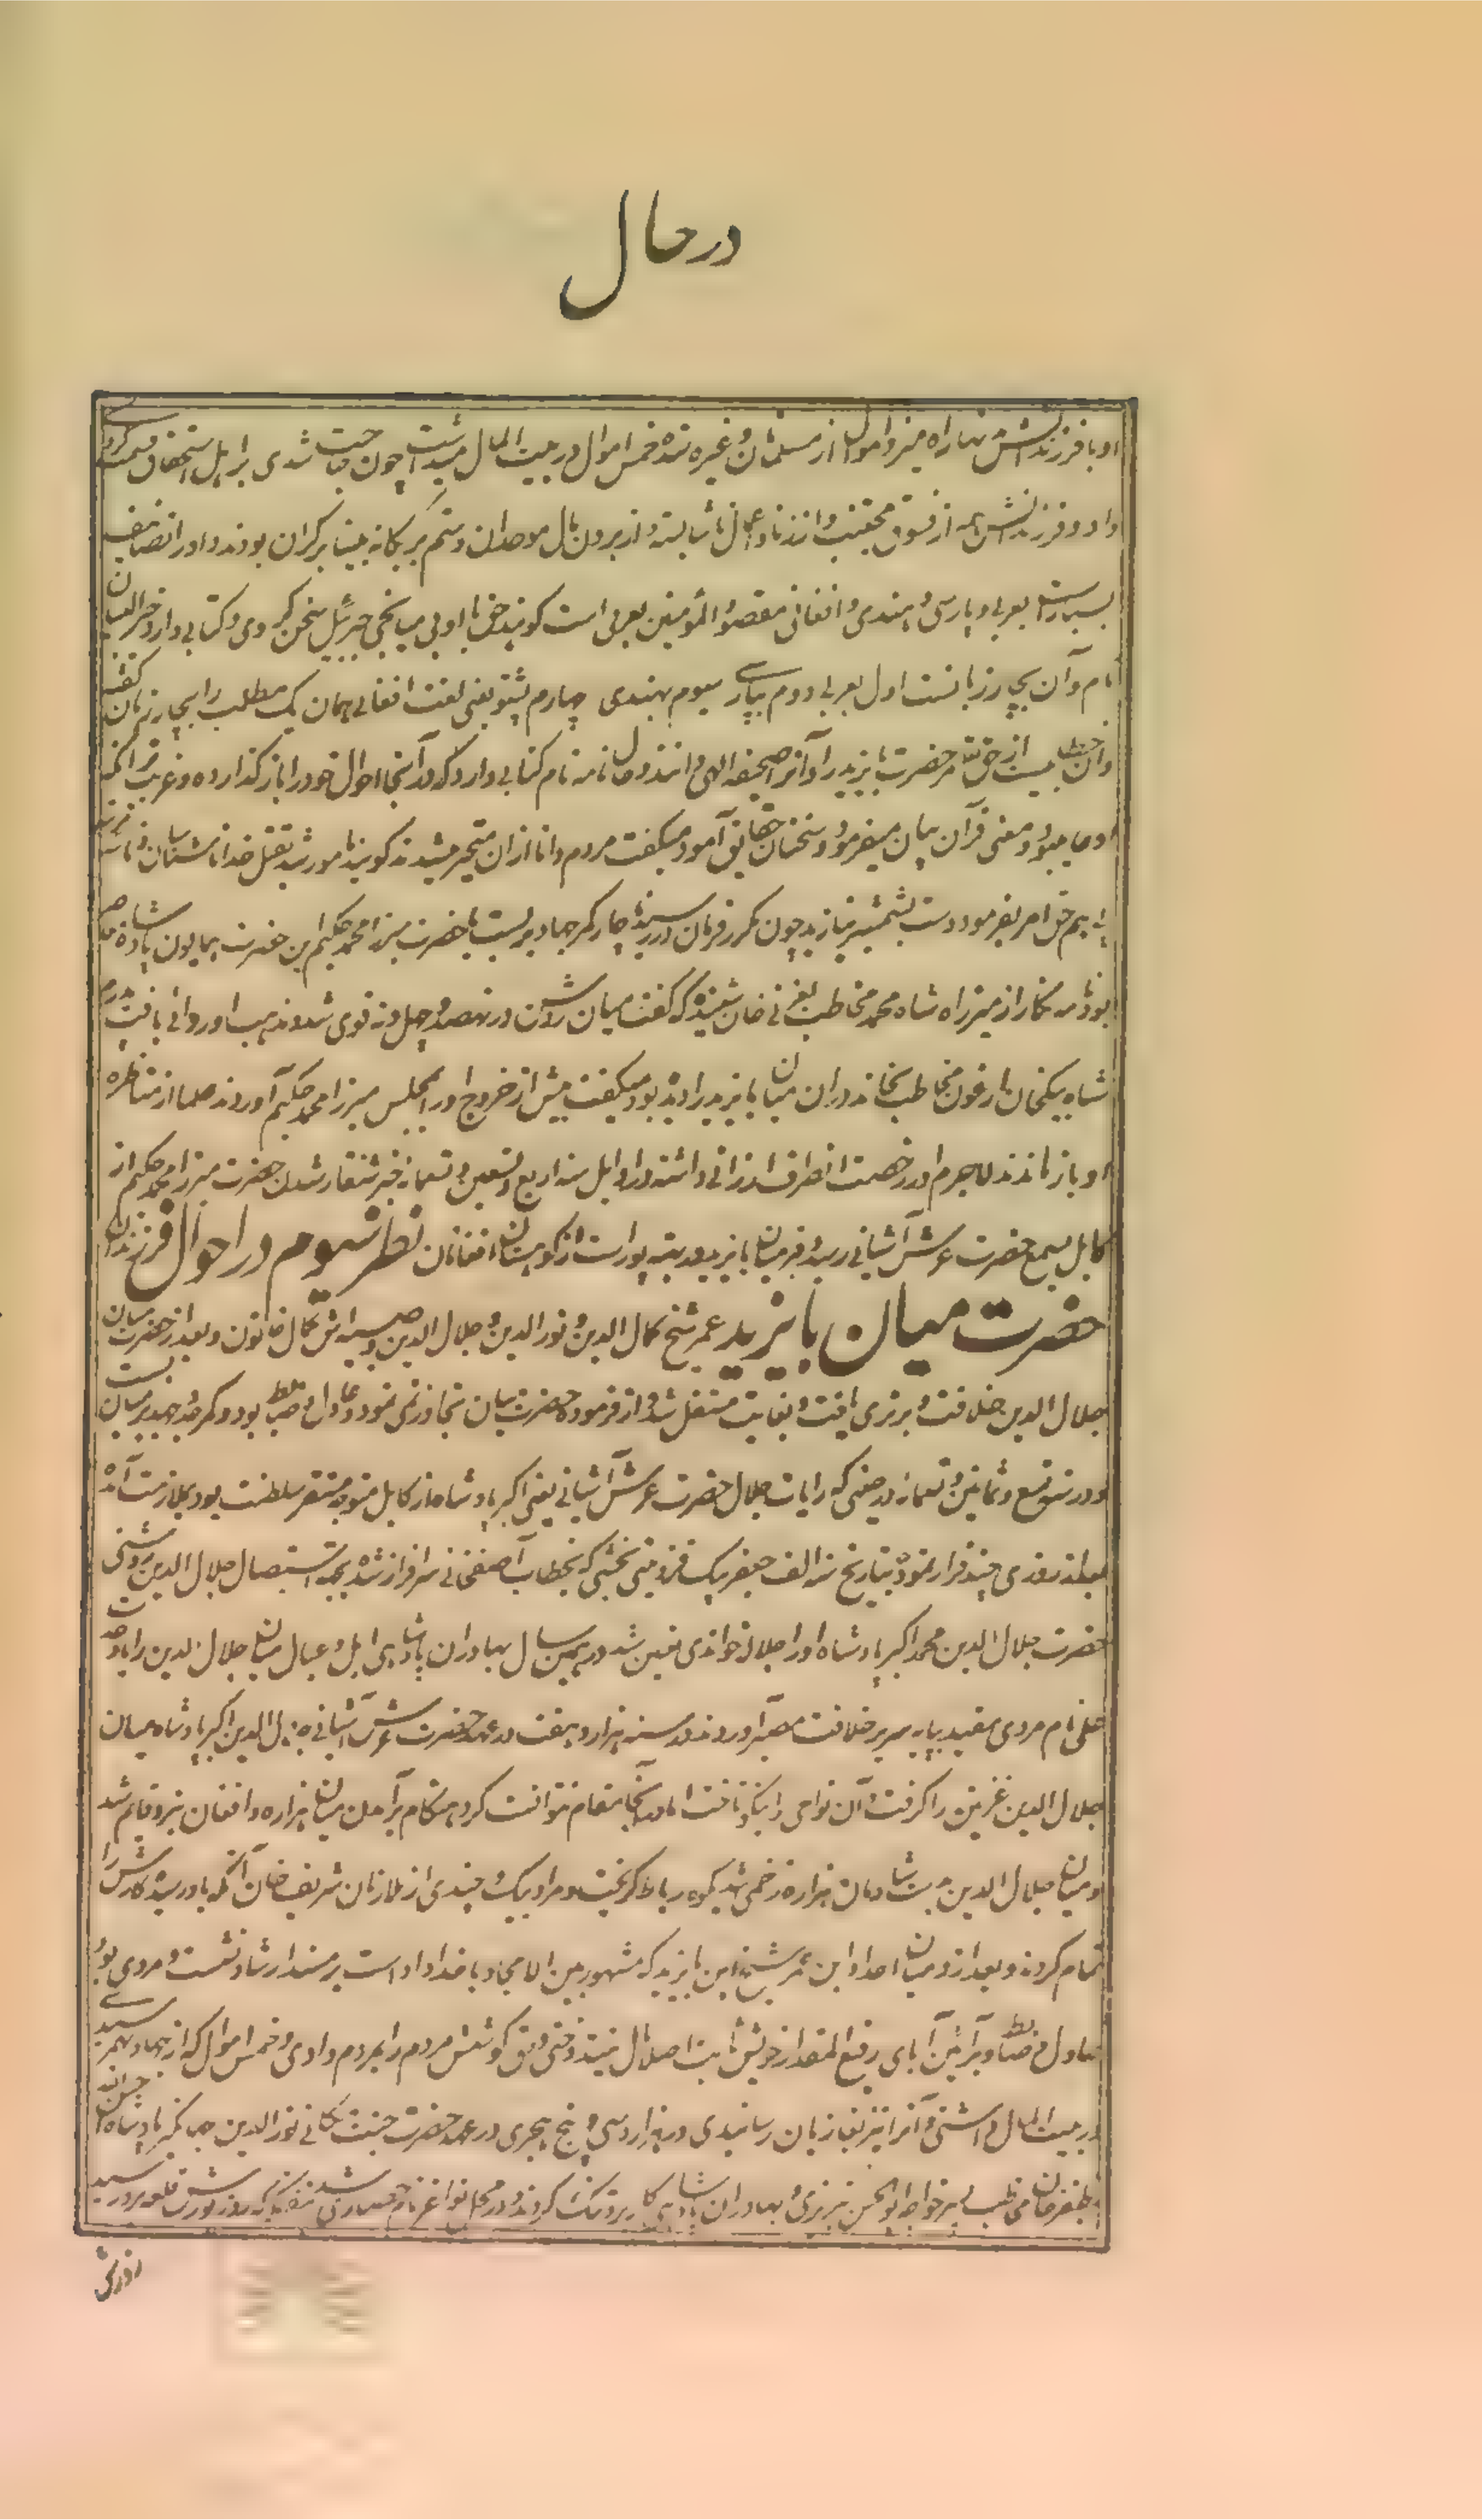 در حال
او با فرزندانش سالها راه میزد و اموال از مسلمان و غیره ستده خمس اموال در بیت المال میداشت چون حاجت شدی بر اهل استحقاق قسمت کردی
داد و فرزندانش همه از فسوق مجتنب و از زنا و اعمال ناشایسته و از بردن مال موحدان و ستم بر یگانه بینان بر کران بودند و او را تصانیف
بسیارست بعربی و پارسی و هندی و افغانی مقصود المؤمنین بعربی است گویند حق با او بی میانجی جبرئیل سخن کردی و کتابی دارد خیر البیان
نام و آن بچهار زبانست اول بعربی دوم بپارسی سیوم بهندی چهارم پشتو یعنی لغت افغانی همان یک مطلب را بچهار زبان گفته
و آن خطابیست از حق مر حضرت بایزید را و آنرا صحیفه الهی دانند و حال نامه نام کتابی دارد که در آنجا احوال خود را باز گذارده و غریب تر آنکه
او عامی بود و معنی قرآن بیان میفرمود و سخنان حقایق آمود میگفت مردم دانا از آن متحیر میشدند گویند مامور شد بقتل خدا ناشناسان
هم حق امر بفرمود دست بشمشیر نیازید چون مکرر فرمان در رسید ناچار کمر جهاد بربست با حضرت میرزا محمد حکیم ابن حضرت همایون پادشاه
بود نامه نگار از میرزا شاه محمد مخاطب بغزنی خان شنیده که گفت میان روشن در نهصد و چهل و نه قوی شد و مذهب او روائی یافت پدرم
شاه بیکخان ارغون مخاطب بخاندوران میان بایزید را دیده بود میگفت پیش از خروج او را بمجلس میرزا محمد حکیم آوردند علما از مناظره
او باز ماندند لاجرم او را رخصت انطراف ارزانی داشتند در اوایل سنه اربع و تسعین و تسعمائه خبر شنقار شدن حضرت میرزا محمد حکیم از
کابل بسمع حضرت عرش آشیانی رسید و قبر میان بایزید در بته پور است از کوهستان افغانان نظر سیوم در احوال فرزندان
حضرت میان بایزید عمر شیخ کمال الدین و نور الدین و جلال الدین و صبیه اش کمال خاتون و بعد از حضرت میان
جلال الدین خلافت و برتری یافت و بغایت مستقل شد و از فرموده حضرت میان تجاوز نمی نمود و عادل و ضابط بود و کمر جد و جهد بر میان بست
و در سنه تسع و ثمانین و تسعمائه در حینی که رایات جلال حضرت عرش آشیانی یعنی اکبر پادشاه از کابل متوجه مستقر سلطنت بود بملازمت آمده
بعد از روزی چند فرار نمود بتاریخ سنه الف جعفر بیک قزوینی بخشی که بخطاب آصفخانی سرافراز شده بجهت استیصال جلال الدین روشنی
حضرت جلال الدین محمد اکبر پادشاه او را جلاله خواندی تعین شد در همین سال بهادران پادشاهی اهل و عیال میان جلال الدین را با وحدت
علی نام مردی مقید بپایه سریر خلافت مصیر آوردند در سنه هزار و هفت در عهد حضرت عرش آشیانی جلال الدین اکبر پادشاه میان
جلال الدین غزنین را گرفت و آن نواحی را یکسر تاخت اما در آنجا مقام نتوانست کرد هنگام برآمدن میان هزاره و افغان نبرد قایم شد
و میان جلال الدین بدست شادمان هزاره زخمی شد بکوه رباط گریخت و مراد بیک و چندی از ملازمان شریف خان اتکه باو رسیده کارش را
تمام کردند و بعد ازو میان احداد ابن عمر شیخ ابن بایزید که مشهور بین الامجاد باحداد است بر مسند ارشاد نشست و مردی بود
عادل و ضابط و بر آئین آبای رفیع المقدار خویش ثابت اصلا مال نیندوختی و حق کوشش مردم را بمردم دادی و خمس اموال که از جهاد بهم رسیدی
در بیت المال داشتی و آنرا نیز بغازیان رسانیدی در هزار و سی و پنج هجری در عهد حضرت جنت مکانی نور الدین جهانگیر پادشاه احسن الله
ظفر خان مخاطب پسر خواجه ابوالحسن تبریزی و بهادران پادشاهی کار برو تنگ کردند و در محل نواغر نام حصاری شد گویند که روز یورش قلعه بدو رسید